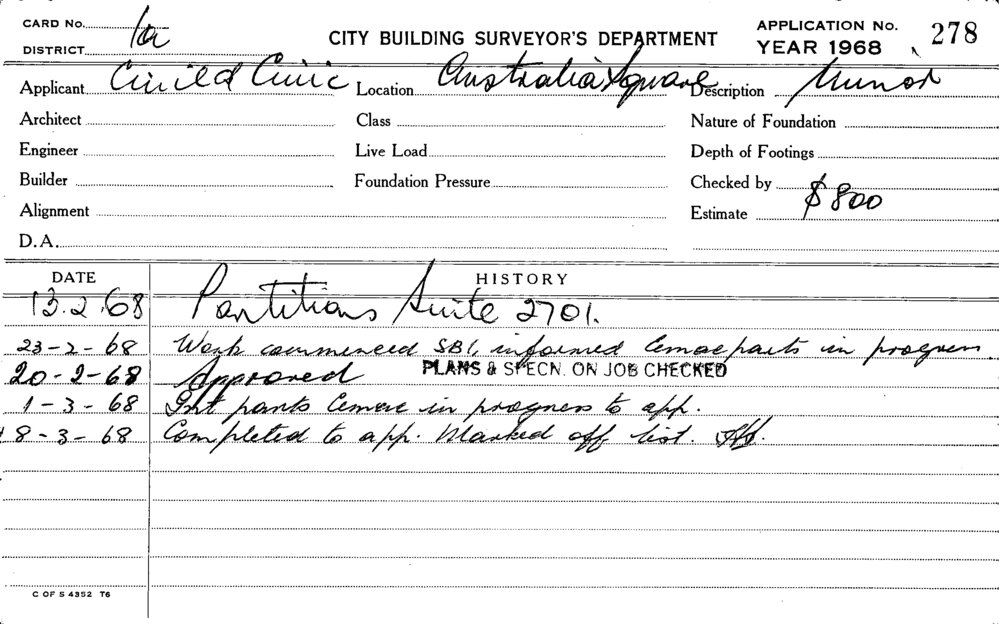 CARD No. 1a
DISTRICT
CITY BUILDING SURVEYOR'S DEPARTMENT
APPLICATION No. 278
YEAR 1968
Applicant Civil & Civic Location Australia Square Description Minor
Architect Class Nature of Foundation
Engineer Live Load Depth of Footings
Builder Foundation Pressure Checked by
Alignment Estimate $800
D.A.
DATE HISTORY
13.2.68 Partitions Suite 2701.
23-2-68 Work commenced SBI, informed Cemac parts in progress
20-2-68 Approved PLANS & SPECN. ON JOB CHECKED
1-3-68 Int parts Cemac in progress to app.
8-3-68 Completed to app. Marked off list.
C OF S 4352 T6